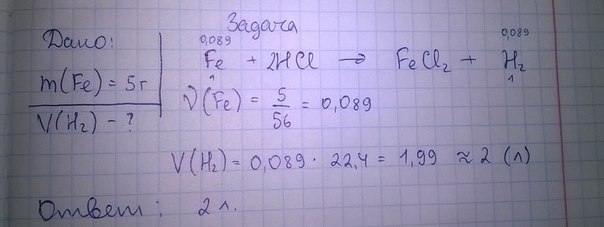 Задача
Дано:
m(Fe) = 5г
V(H₂) - ?
0,089 0,089
Fe + 2HCl → FeCl₂ + H₂
1 1
ν(Fe) = 5/56 = 0,089
V(H₂) = 0,089 · 22,4 = 1,99 ≈ 2 (л)
Ответ: 2 л.